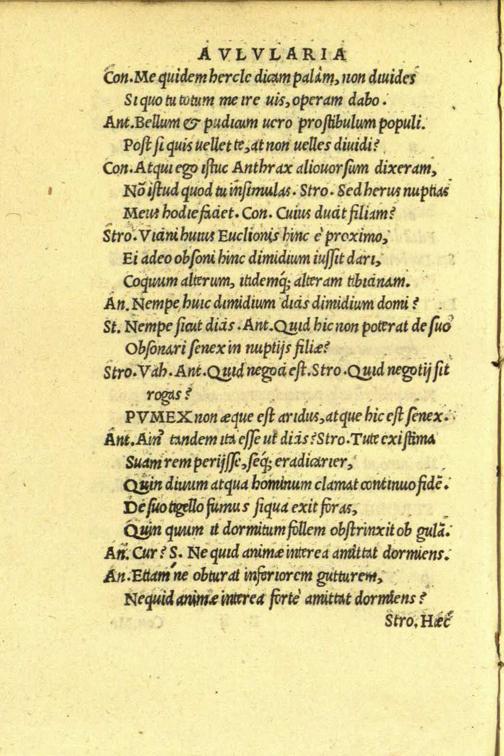 AVLVLARIA
Con. Me quidem hercle dicam palàm, non diuides
Si quo tu totum me ire uis, operam dabo.
Ant. Bellum & pudicum uero prostibulum populi.
Post si quis uellet te, at non uelles diuidi?
Con. Atqui ego istuc Anthrax aliouorsum dixeram,
Nõ istud quod tu insimulas. Stro. Sed herus nuptias
Meus hodie faciet. Con. Cuius ducit filiam?
Stro. Vicini huius Euclionis hinc è proximo,
Ei adeo obsoni hinc dimidium iussit dari,
Coquum alterum, itidemq; alteram tibicinam.
An. Nempe huic dimidium dicis dimidium domi?
St. Nempe sicut dicis. Ant. Quid hic non poterat de suo
Obsonari senex in nuptijs filiæ?
Stro. Vah. Ant. Quid negoci est. Stro. Quid negotij sit
rogas?
PVMEX non æque est aridus, atque hic est senex.
Ant. Ain' tandem ita esse ut dicis? Stro. Tute existima
Suam rem perijsse, seq; eradicarier,
Quin diuum atqua hominum clamat continuo fidẽ.
De suo tigello fumus si qua exit foras,
Quin quum it dormitum follem obstrinxit ob gulã.
An. Cur? S. Ne quid animæ interea amittat dormiens.
An. Etiam'ne obturat inferiorem gutturem,
Nequid animæ interea fortè amittat dormiens?
Stro. Hæc